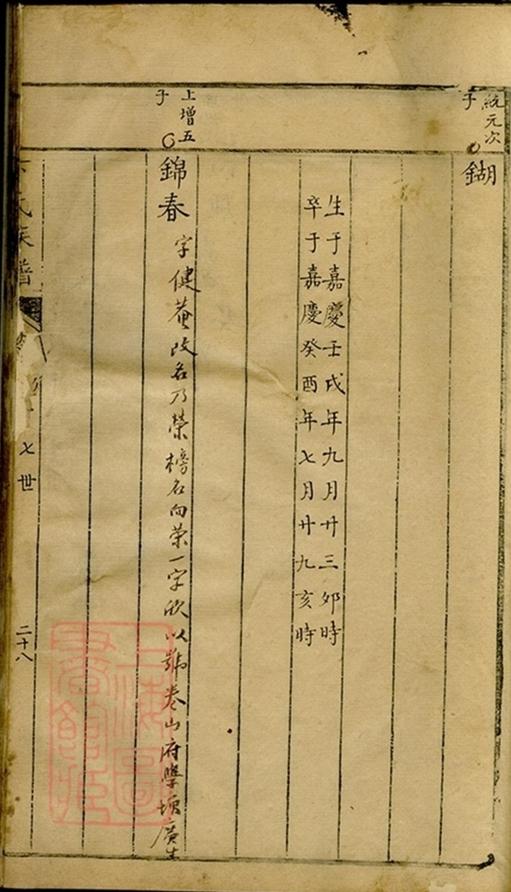 統元次
子
鍸
生于嘉慶壬戌年九月廿三卯時
卒于嘉慶癸酉年七月廿九亥時
上增五
子
錦春
字健菴改名乃榮榜名向榮一字欣以號卷山府學增廣生
氏族譜
七世
二十八
上海圖書館藏